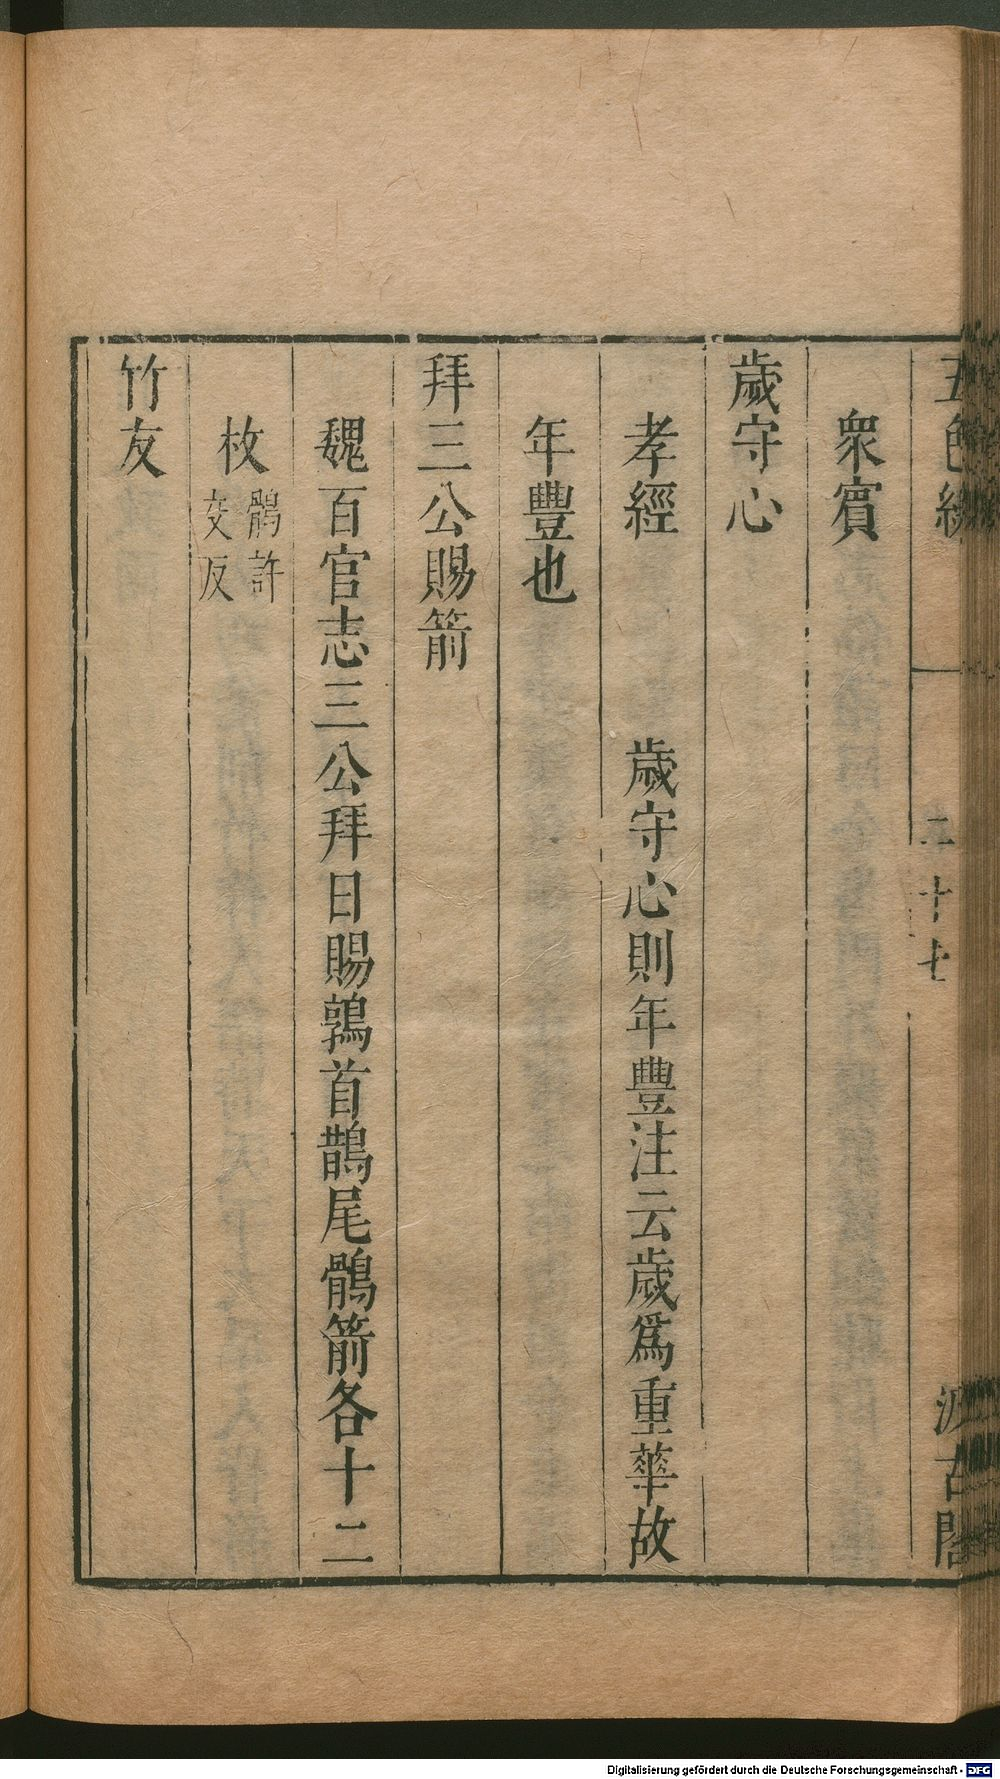 五色線
二十七
汲古閣
衆賓
歲守心
孝經 歲守心則年豐注云歲爲重華故
年豐也
拜三公賜箭
魏百官志三公拜日賜鶉首鵲尾鶻箭各十二
枚鶻許交反
竹友
Digitalisierung gefördert durch die Deutsche Forschungsgemeinschaft - DFG